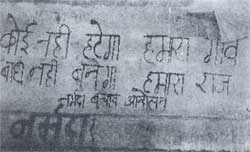 कोई नहीं हटेगा हमारा गाव
बांध नहीं बनेगा हमारा राज
नर्मदा बचाव आंदोलन
नर्मदा